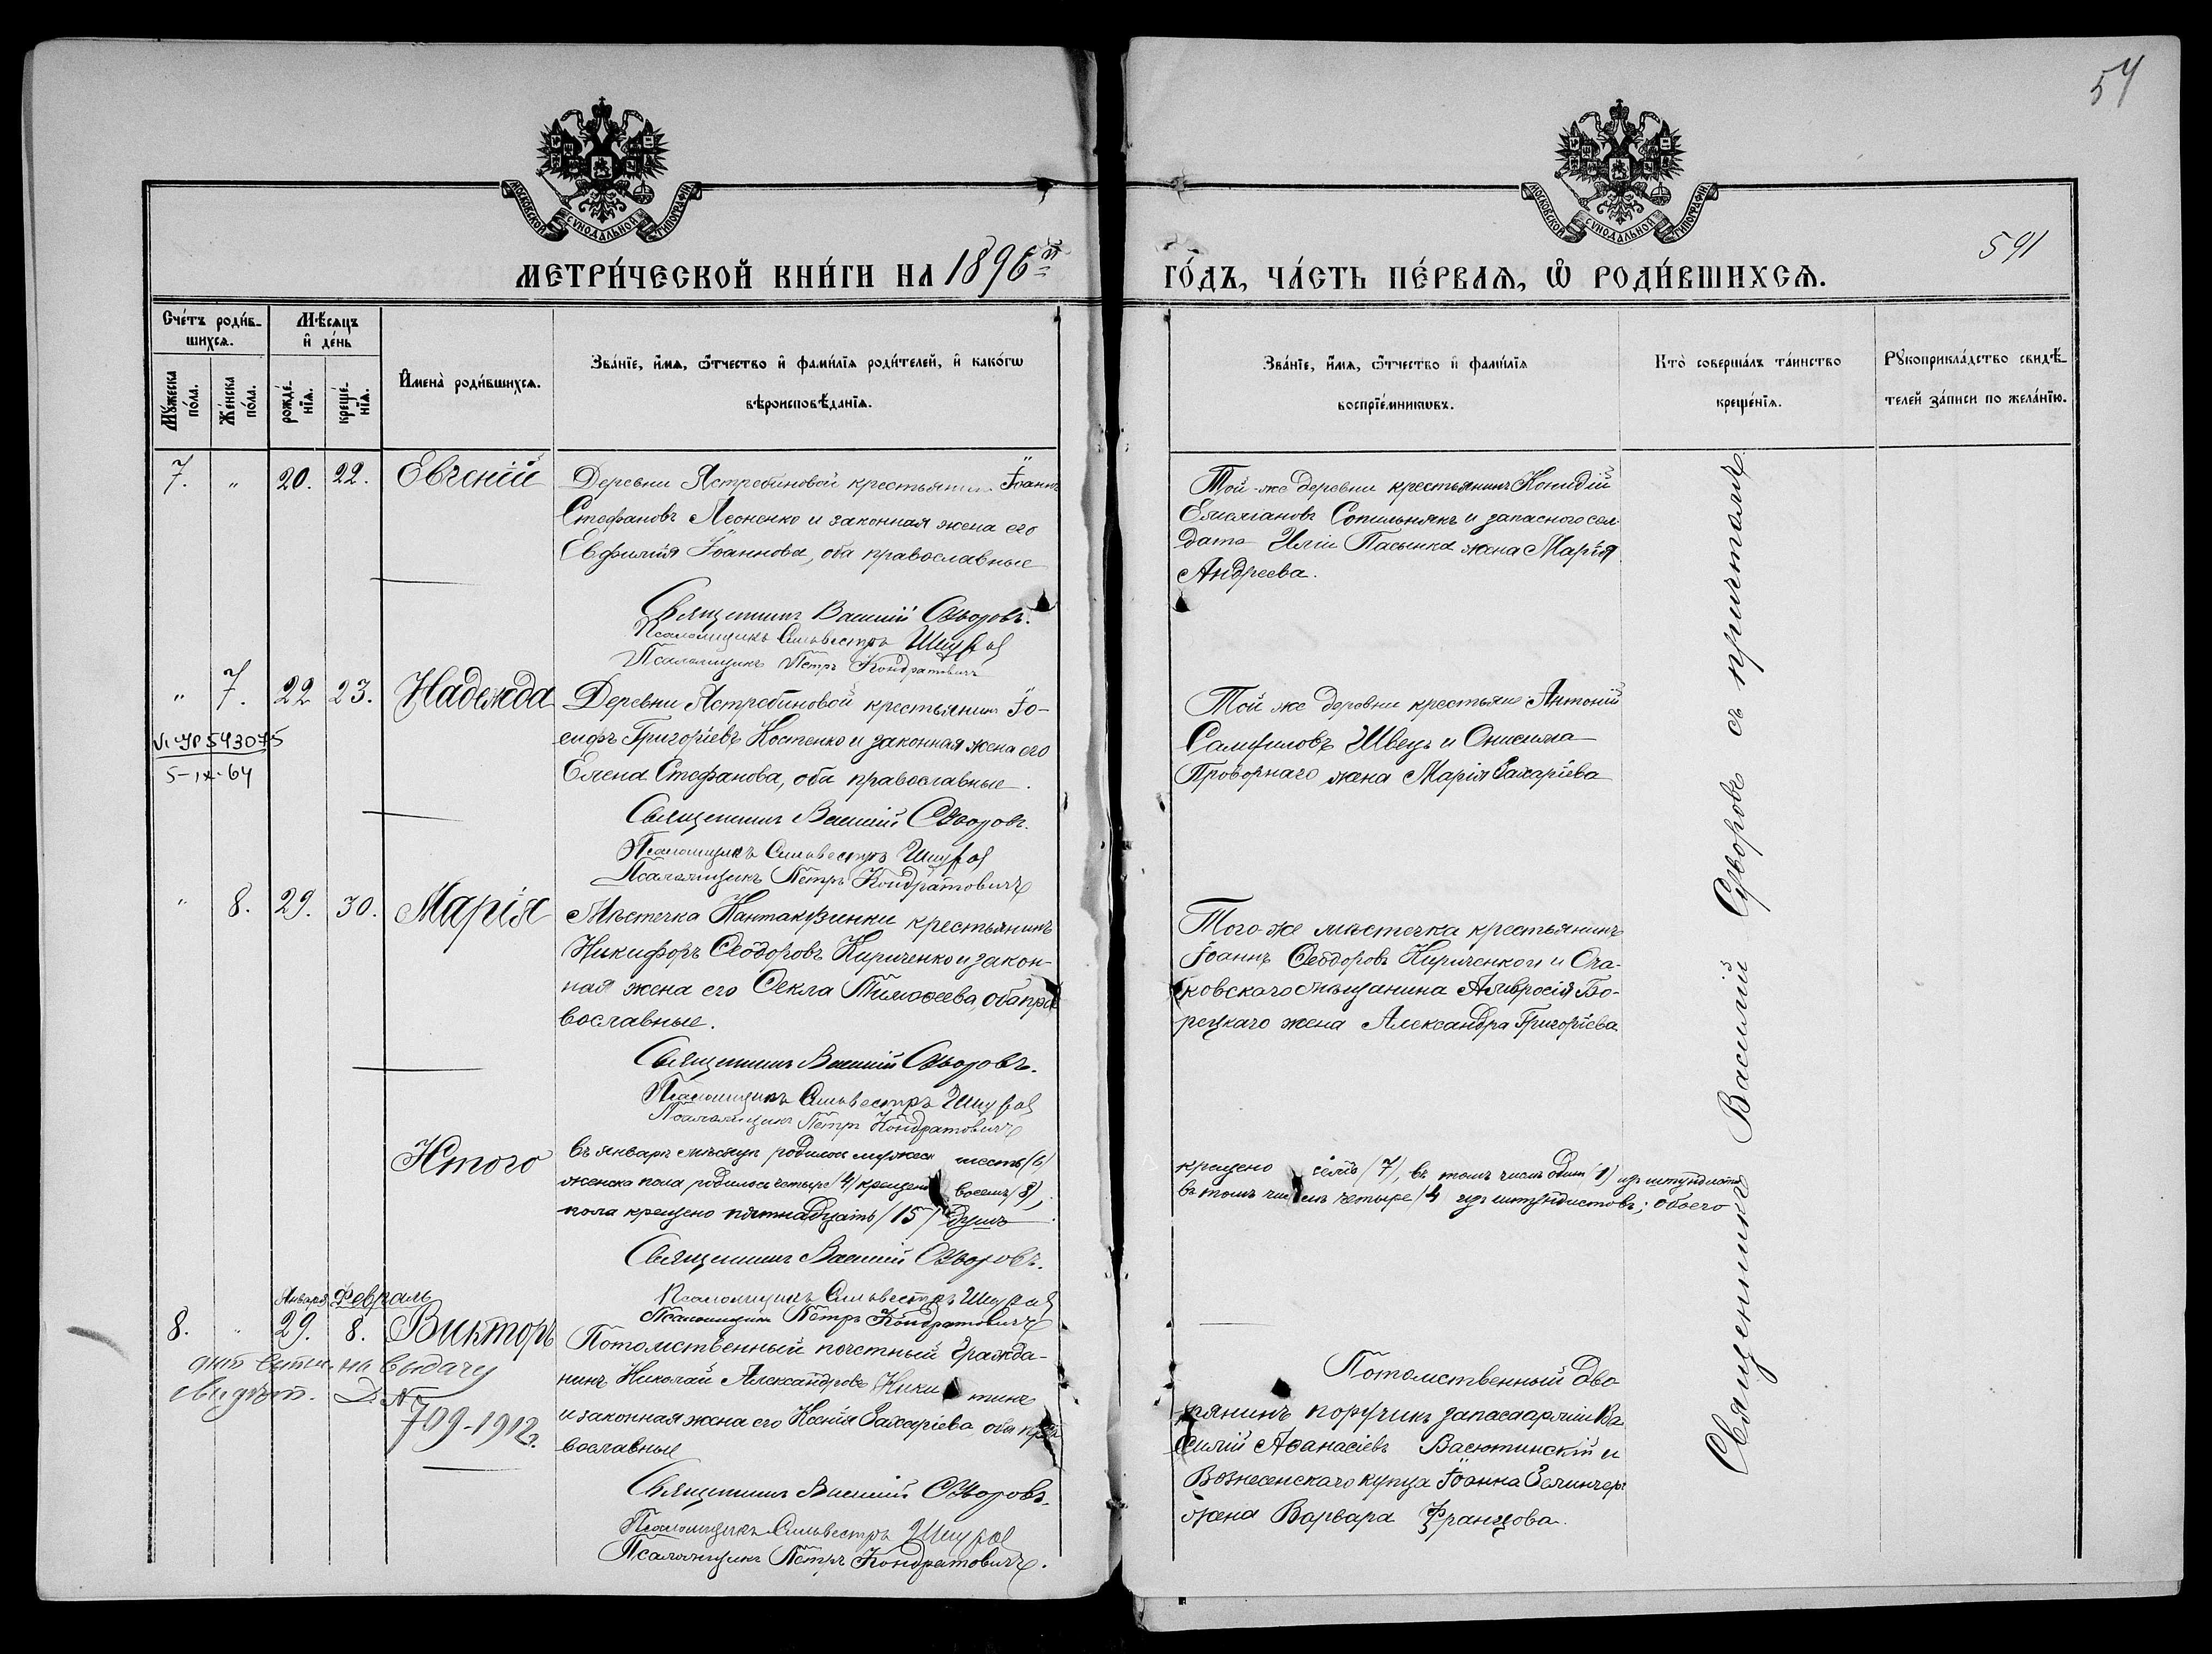 54
591
МОСКОВСКОЙ СУНОДАЛЬНОЙ ТИПОГРАФІИ
МОСКОВСКОЙ СУНОДАЛЬНОЙ ТИПОГРАФІИ
МЕТРИ́ЧЕСКОЙ КНИ́ГИ НА 1896й
ГО́ДЪ, ЧА́СТЬ ПЕ́РВАѦ, Ѡ҆ РОДИ́ВШИХСѦ.
Сче́тъ роди́в-
шихсѧ.
Мѣ́сѧцъ
и҆ де́нь
Мꙋ́жеска
по́ла.
Же́нска
по́ла.
рожде́-
нїѧ.
креще́-
нїѧ.
И҆мена̀ роди́вшихсѧ.
Зва́нїе, и҆́мѧ, ѻ҆́тчество и҆ фами́лїѧ роди́телей, и҆ како́гѡ
вѣроисповѣ́данїѧ.
Зва́нїе, и҆́мѧ, ѻ҆́тчество и҆ фами́лїѧ
воспрїе́мникѡвъ.
Кто̀ соверша́лъ та́инство
креще́нїѧ.
Рꙋкоприкла́дство свидѣ́-
телей за́писи по жела́нїю.
7. " 20. 22. Евгеній
Деревни Ястребиновой крестьянинъ Іоаннъ
Стефановъ Леоненко и законная жена его
Евфимія Іоаннова, оба православные
Священникъ Василій Суворовъ.
Псаломщикъ Сильвестръ
Псаломщикъ Петръ Кондратовичъ
Той-же деревни крестьянинъ
Емеліановъ Сопильнякъ и запаснаго сол-
дата Иліи Пасынка жена Марія
Андреева.
" 7. 22 23. Надежда
Деревни Ястребиновой крестьянинъ Іо-
сифъ Григоріевъ Костенко и законная жена его
Елена Стефанова, оба православные.
Священникъ Василій Суворовъ.
Псаломщикъ Сильвестръ
Псаломщикъ Петръ Кондратовичъ
543075
5-IX-64
Той же деревни крестьян Антоній
Самуиловъ Швецъ и Онисима
Проворнаго жена Марія Захаріева
" 8. 29. 30. Марія
Мѣстечка Кантакузинки крестьянинъ
Никифоръ Ѳеодоровъ Кириченко и закон-
ная жена его Ѳекла Тимоѳеева, оба пра
вославные.
Священникъ Василій Суворовъ.
Псаломщикъ Сильвестръ
Псаломщикъ Петръ Кондратовичъ
Того же мѣстечка крестьянинъ
Іоаннъ Ѳеодоровъ Кириченко и Оча-
ковскаго мѣщанина Амвросія Бо-
рецкаго жена Александра Григоріева
Итого
Въ январѣ мѣсяцѣ родилось мужеск шесть (6)
женска пола родилось четыре (4) крещено восемь (8),
пола крещено пятнадцать (15) душъ.
Священникъ Василій Суворовъ.
Псаломщикъ Сильвестръ
Псаломщикъ Петръ Кондратовичъ
крещено семь (7), въ томъ числѣ одинъ (1) изъ штундистовъ
въ томъ числѣ четыре (4 изъ штундистовъ; обоего
Января Февраль
8. " 29. 8. Викторъ
на выдачу
свидѣт. Д. №
709-1912г.
Потомственный почетный гражда-
нинъ Николай Александровъ Никитинъ
и законная жена его Ксенія Захаріева, оба пра
вославные
Священникъ Василій Суворовъ.
Псаломщикъ Сильвестръ
Псаломщикъ Петръ Кондратовичъ.
Потомственный дво
рянинъ поручик запаса арміи Ва
силій Аѳанасіевъ Васютинскій и
Вознесенскаго купца Іоанна
жена Варвара Францова.
Священникъ Василій Суворовъ съ причтомъ